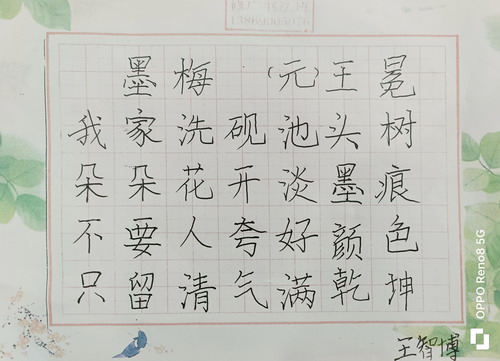 墨梅 (元)王冕
我家洗砚池头树
朵朵花开淡墨痕
不要人夸好颜色
只留清气满乾坤
王智博
OPPO Reno8 5G